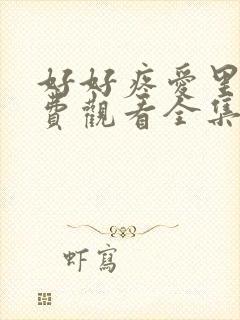 好好疼愛里
費觀看全集
虾寫